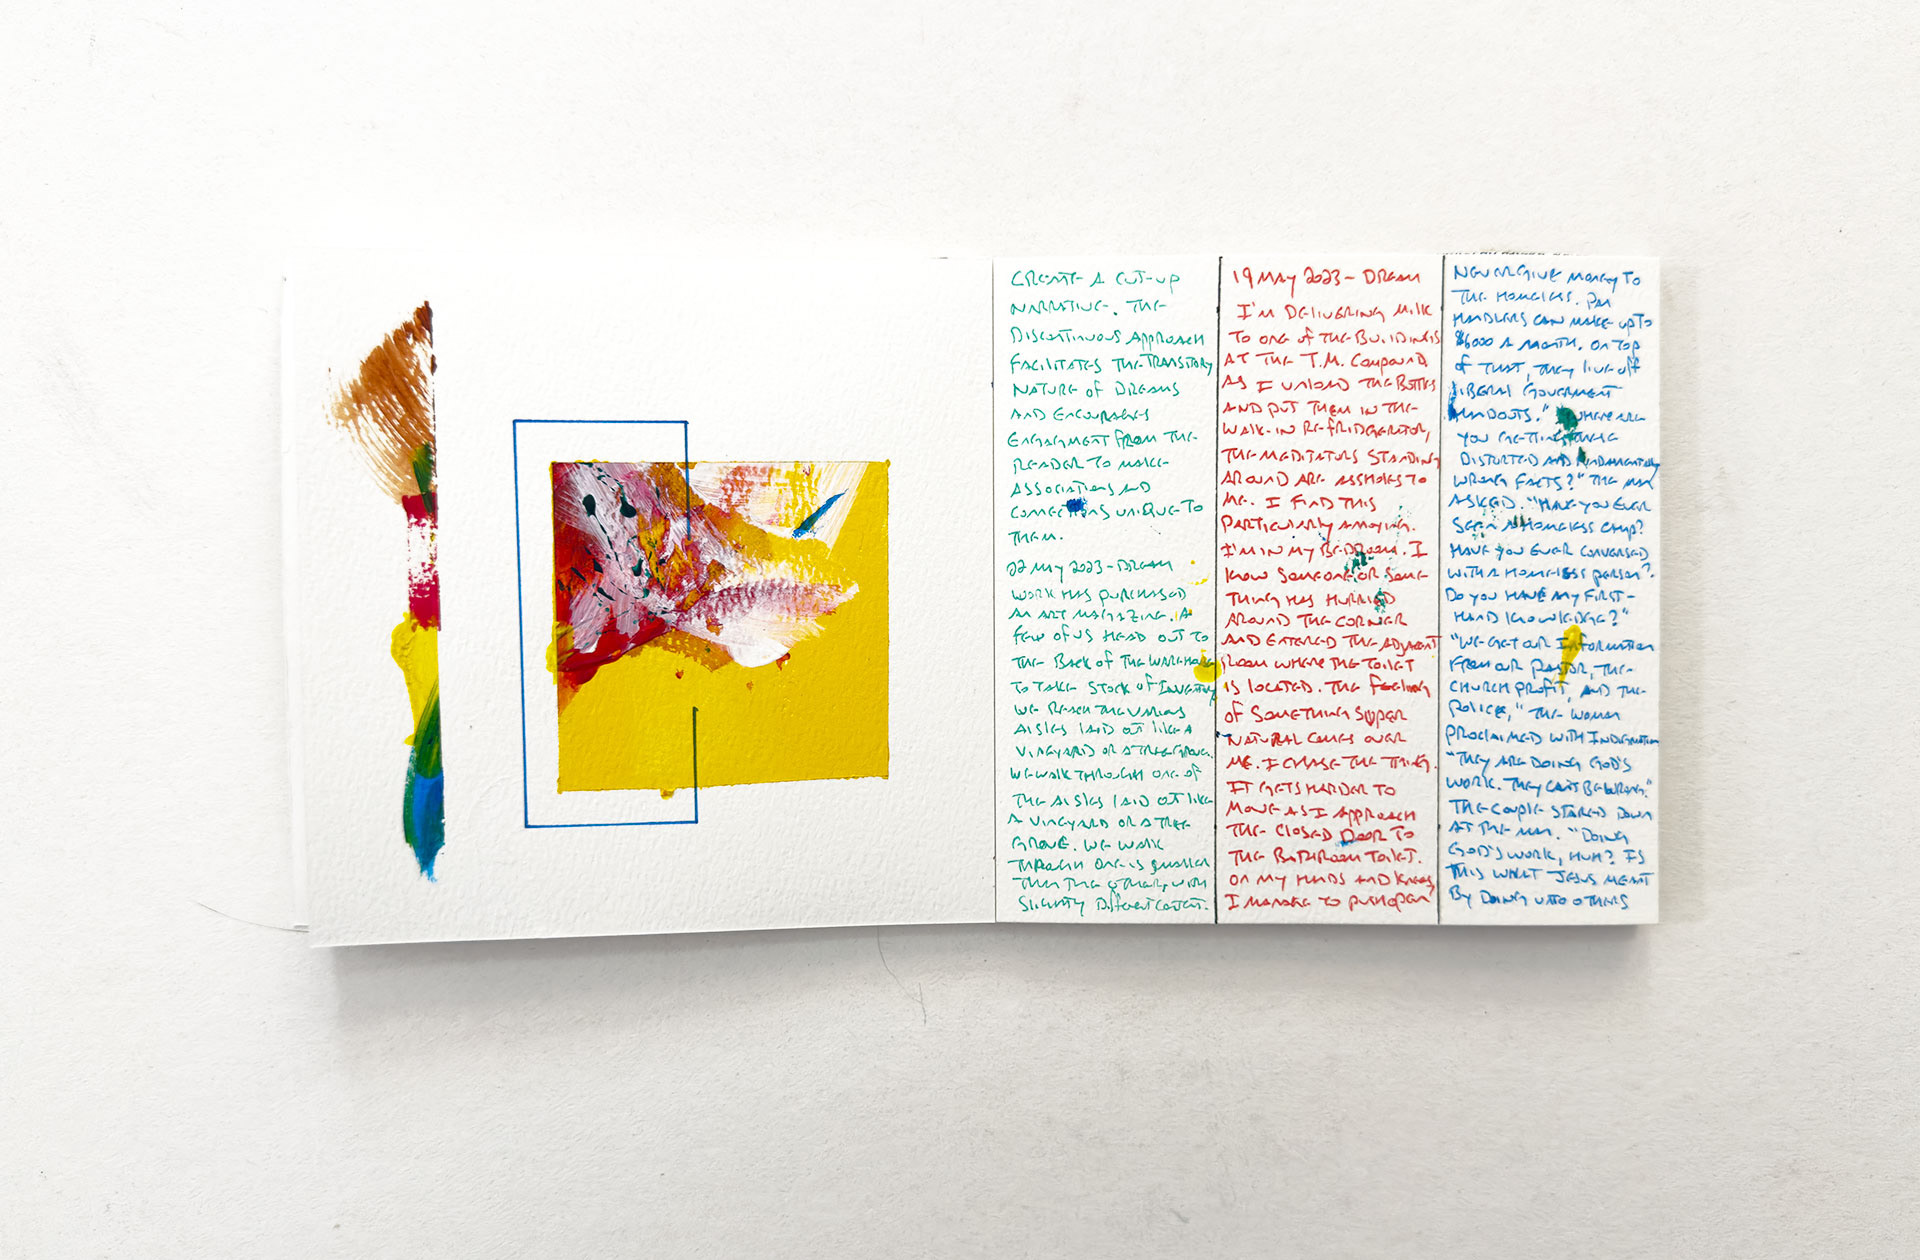 CREATE A CUT-UP
NARRATIVE. THE
DISCONTINUOUS APPROACH
FACILITATES THE TRANSITORY
NATURE OF DREAMS
AND ENCOURAGES
ENGAGEMENT FROM THE
READER TO MAKE
ASSOCIATIONS AND
CONNECTIONS UNIQUE TO
THEM.
22 MAY 2023 - DREAM
WORK HAS PURCHASED
AN ART MAGAZINE. A
FEW OF US HEAD OUT TO
THE BACK OF THE WAREHOUSE
TO TAKE STOCK OF INVENTORY
WE REACH THE VARIOUS
AISLES LAID OUT LIKE A
VINEYARD OR A TREE GROVE.
WE WALK THROUGH ONE OF
THE AISLES LAID OUT LIKE
A VINEYARD OR A TREE
GROVE. WE WALK
THROUGH ONE IS SMALLER
THAN THE OTHER, WITH
SLIGHTLY DIFFERENT CONTENT.
19 MAY 2023 - DREAM
I'M DELIVERING MILK
TO ONE OF THE BUILDINGS
AT THE T.M. COMPOUND
AS I UNLOAD THE BOTTLES
AND PUT THEM IN THE
WALK-IN REFRIDGERATOR,
THE MEDITATORS STANDING
AROUND ARE ASSHOLES TO
ME. I FIND THIS
PARTICULARLY ANNOYING.
I'M IN MY BEDROOM. I
KNOW SOMEONE OR SOME-
THING HAS HURRIED
AROUND THE CORNER
AND ENTERED THE ADJACENT
ROOM WHERE THE TOILET
IS LOCATED. THE FEELING
OF SOMETHING SUPER
NATURAL COMES OVER
ME. I CHASE THE THING.
IT GETS HARDER TO
MOVE AS I APPROACH
THE CLOSED DOOR TO
THE BATHROOM TOILET.
ON MY HANDS AND KNEES,
I MANAGE TO PUSH OPEN
NEVER GIVE MONEY TO
THE HOMELESS. PAN
HANDLERS CAN MAKE UP TO
$6000 A MONTH. ON TOP
OF THAT, THEY LIVE OFF
LIBERAL GOVERNMENT
HANDOUTS." "WHERE ARE
YOU GETTING THESE
DISTORTED AND FUNDAMENTALLY
WRONG FACTS?" THE MAN
ASKED. "HAVE YOU EVER
SEEN A HOMELESS CAMP?
HAVE YOU EVER CONVERSED
WITH A HOMELESS PERSON?
DO YOU HAVE ANY FIRST-
HAND KNOWLEDGE?"
"WE GET OUR INFORMATION
FROM OUR PASTOR, THE
CHURCH PROFIT, AND THE
POLICE," THE WOMAN
PROCLAIMED WITH INDIGNATION
"THEY ARE DOING GOD'S
WORK. THEY CAN'T BE WRONG."
THE COUPLE STARED DOWN
AT THE MAN. "DOING
GOD'S WORK, HUH? IS
THIS WHAT JESUS MEANT
BY DOING UNTO OTHERS